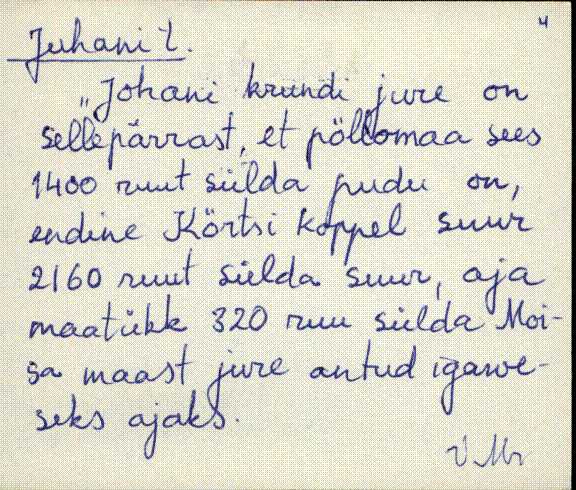 4
Juhani t.
„Johani kründi jure on
sellepärrast, et pöllomaa sees
1400 ruut sülda pudu on,
endine Körtsi koppel suur
2160 ruut sülda suur, aja
maatükk 320 ruu sülda Moi-
sa maast jure antud igawe-
seks ajaks.